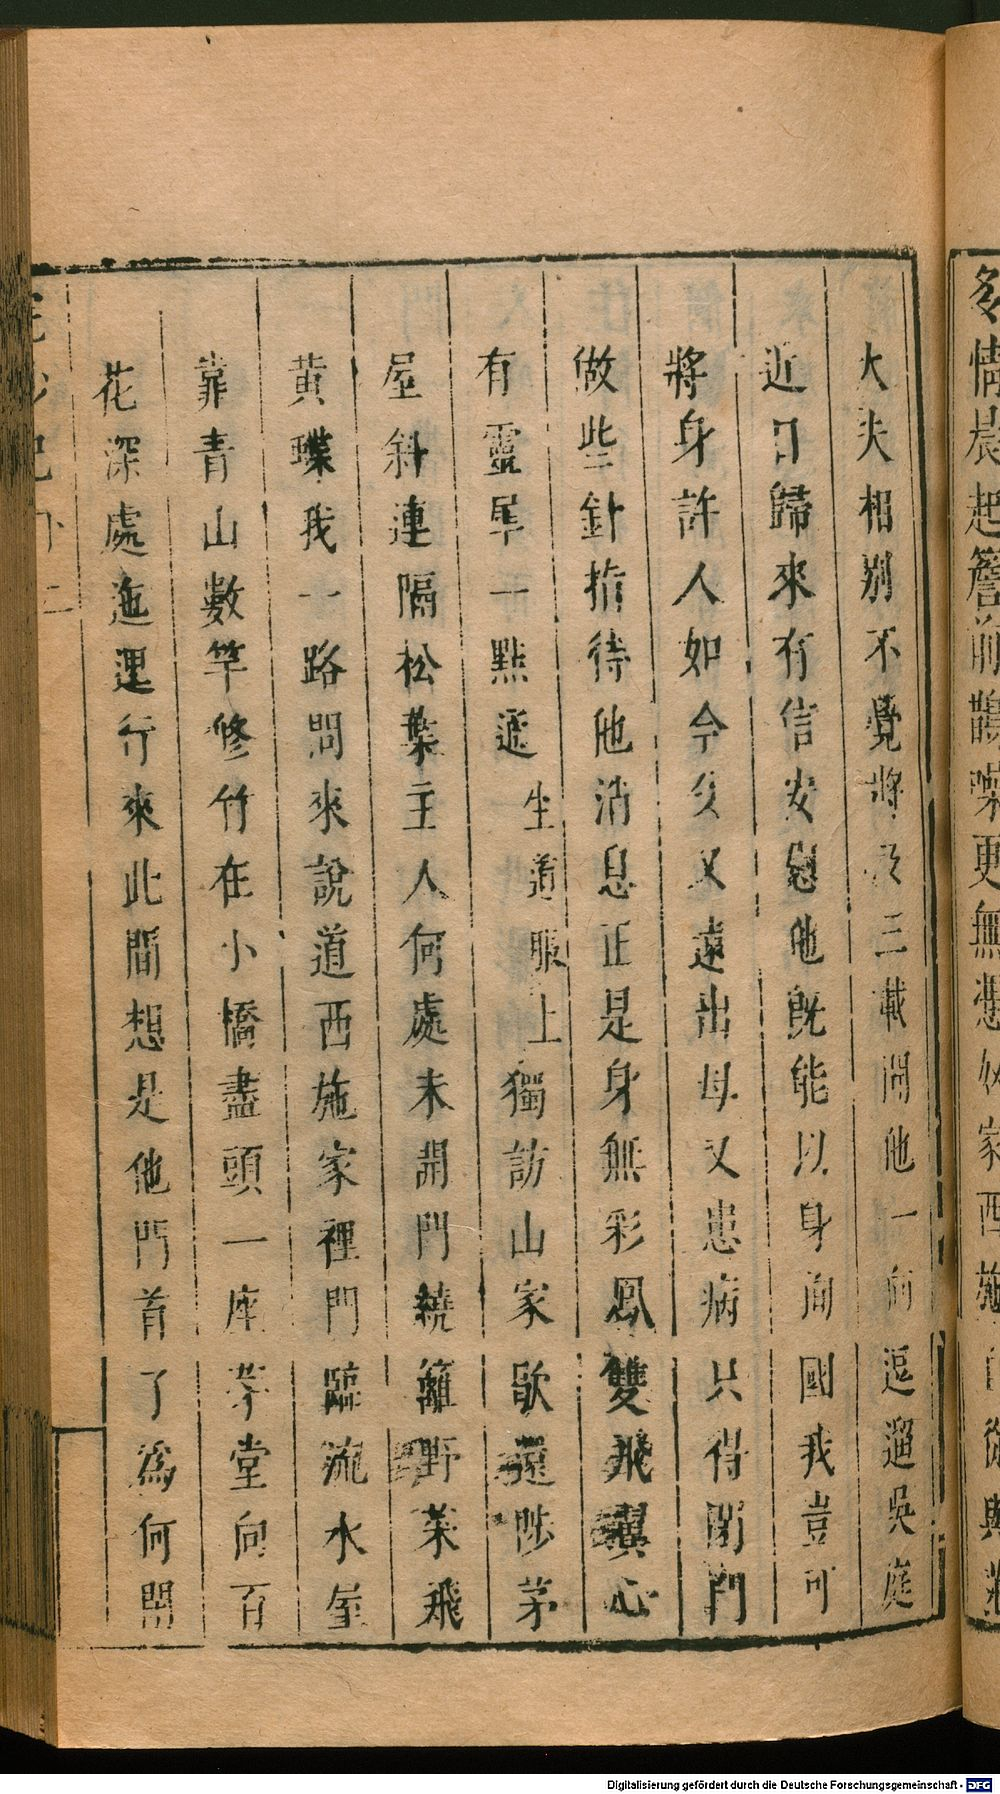 多情晨起簷前鵲噪更無愁奴家西施自從與范
大夫相別不覺將及三載聞他一向逗遛吳庭
近日歸來有信安慰他既能以身殉國我豈可
將身許人如今父又遠出母又患病只得閉門
做些針指待他消息正是身無彩鳳雙飛翼心
有靈犀一點通 生道服上 獨訪山家歇還涉茅
屋斜連隔松葉主人何處未開門繞籬野菜飛
黃蝶我一路問來說道西施家裡門臨流水屋
靠青山數竿修竹在小橋盡頭一座茅堂向百
花深處迤逶行來此間想是他門首了為何閉
浣紗記 卜二
Digitalisierung gefördert durch die Deutsche Forschungsgemeinschaft - DFG